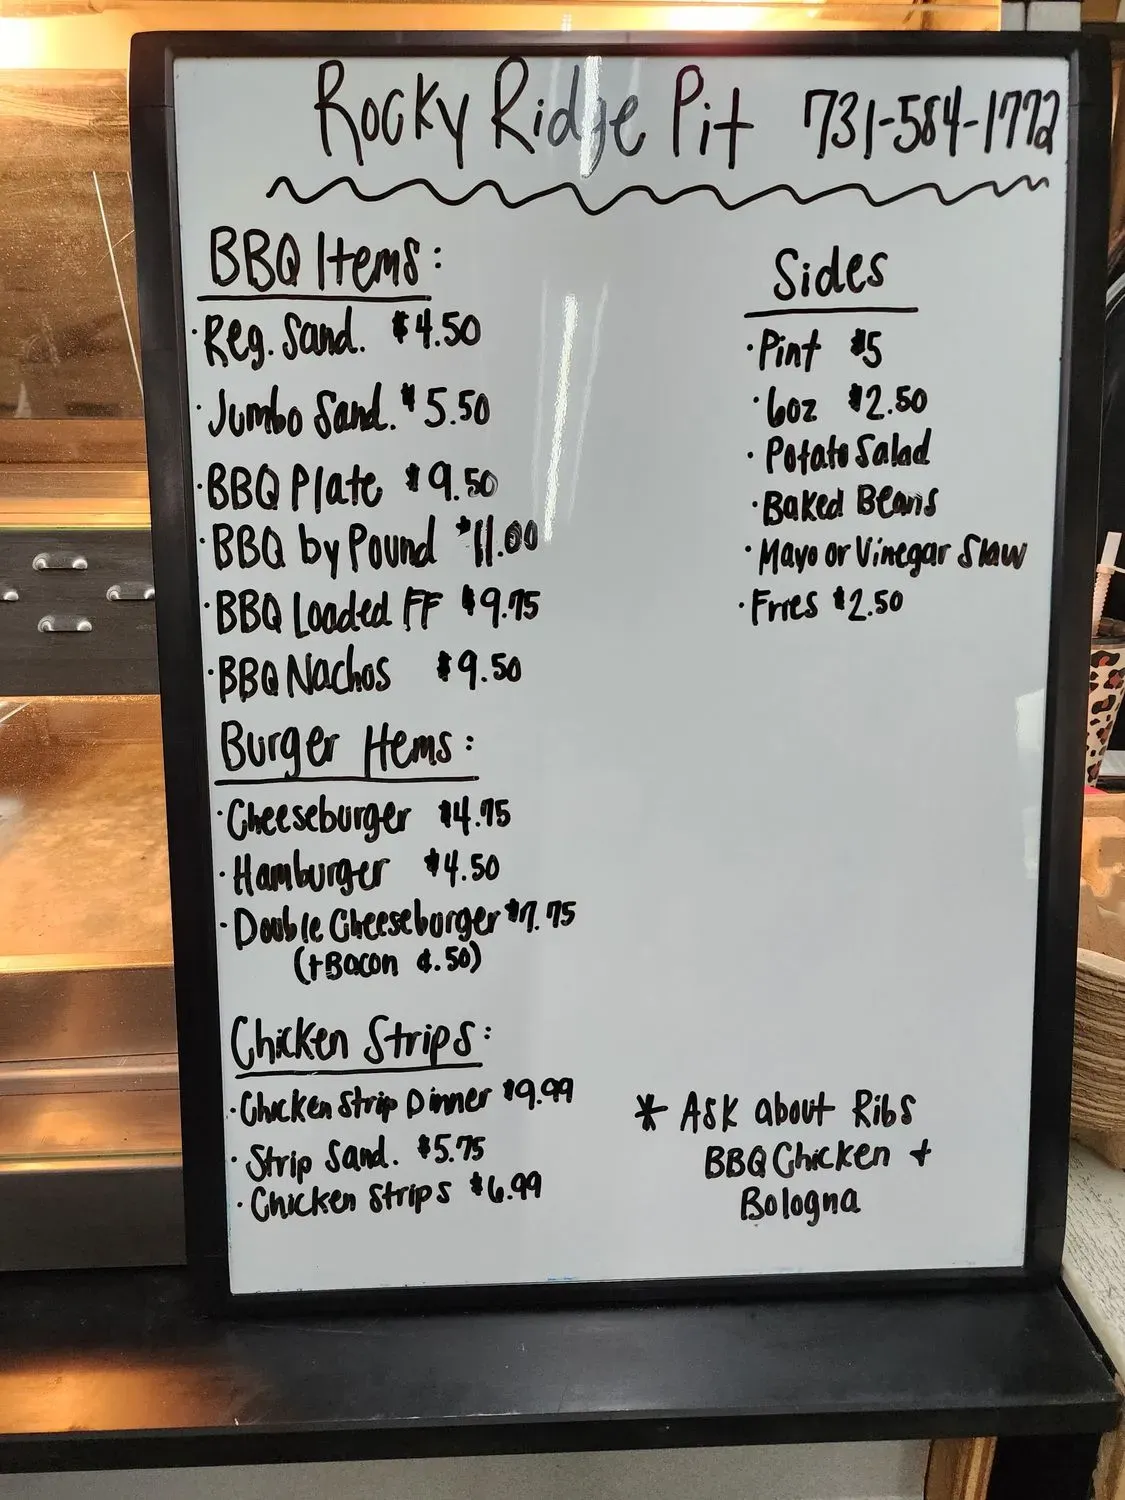 Rocky Ridge Pit 731-584-1772
BBQ Items:
· Reg. Sand. $4.50
· Jumbo Sand. $5.50
· BBQ Plate $9.50
· BBQ by Pound $11.00
· BBQ Loaded FF $9.75
· BBQ Nachos $9.50
Burger Items:
· Cheeseburger $4.75
· Hamburger $4.50
· Double Cheeseburger $7.75
(+Bacon ¢.50)
Chicken Strips:
· Chicken Strip Dinner $9.99
· Strip Sand. $5.75
· Chicken Strips $6.99
Sides
· Pint $5
· 6oz $2.50
· Potato Salad
· Baked Beans
· Mayo or Vinegar Slaw
· Fries $2.50
* Ask about Ribs
BBQ Chicken +
Bologna